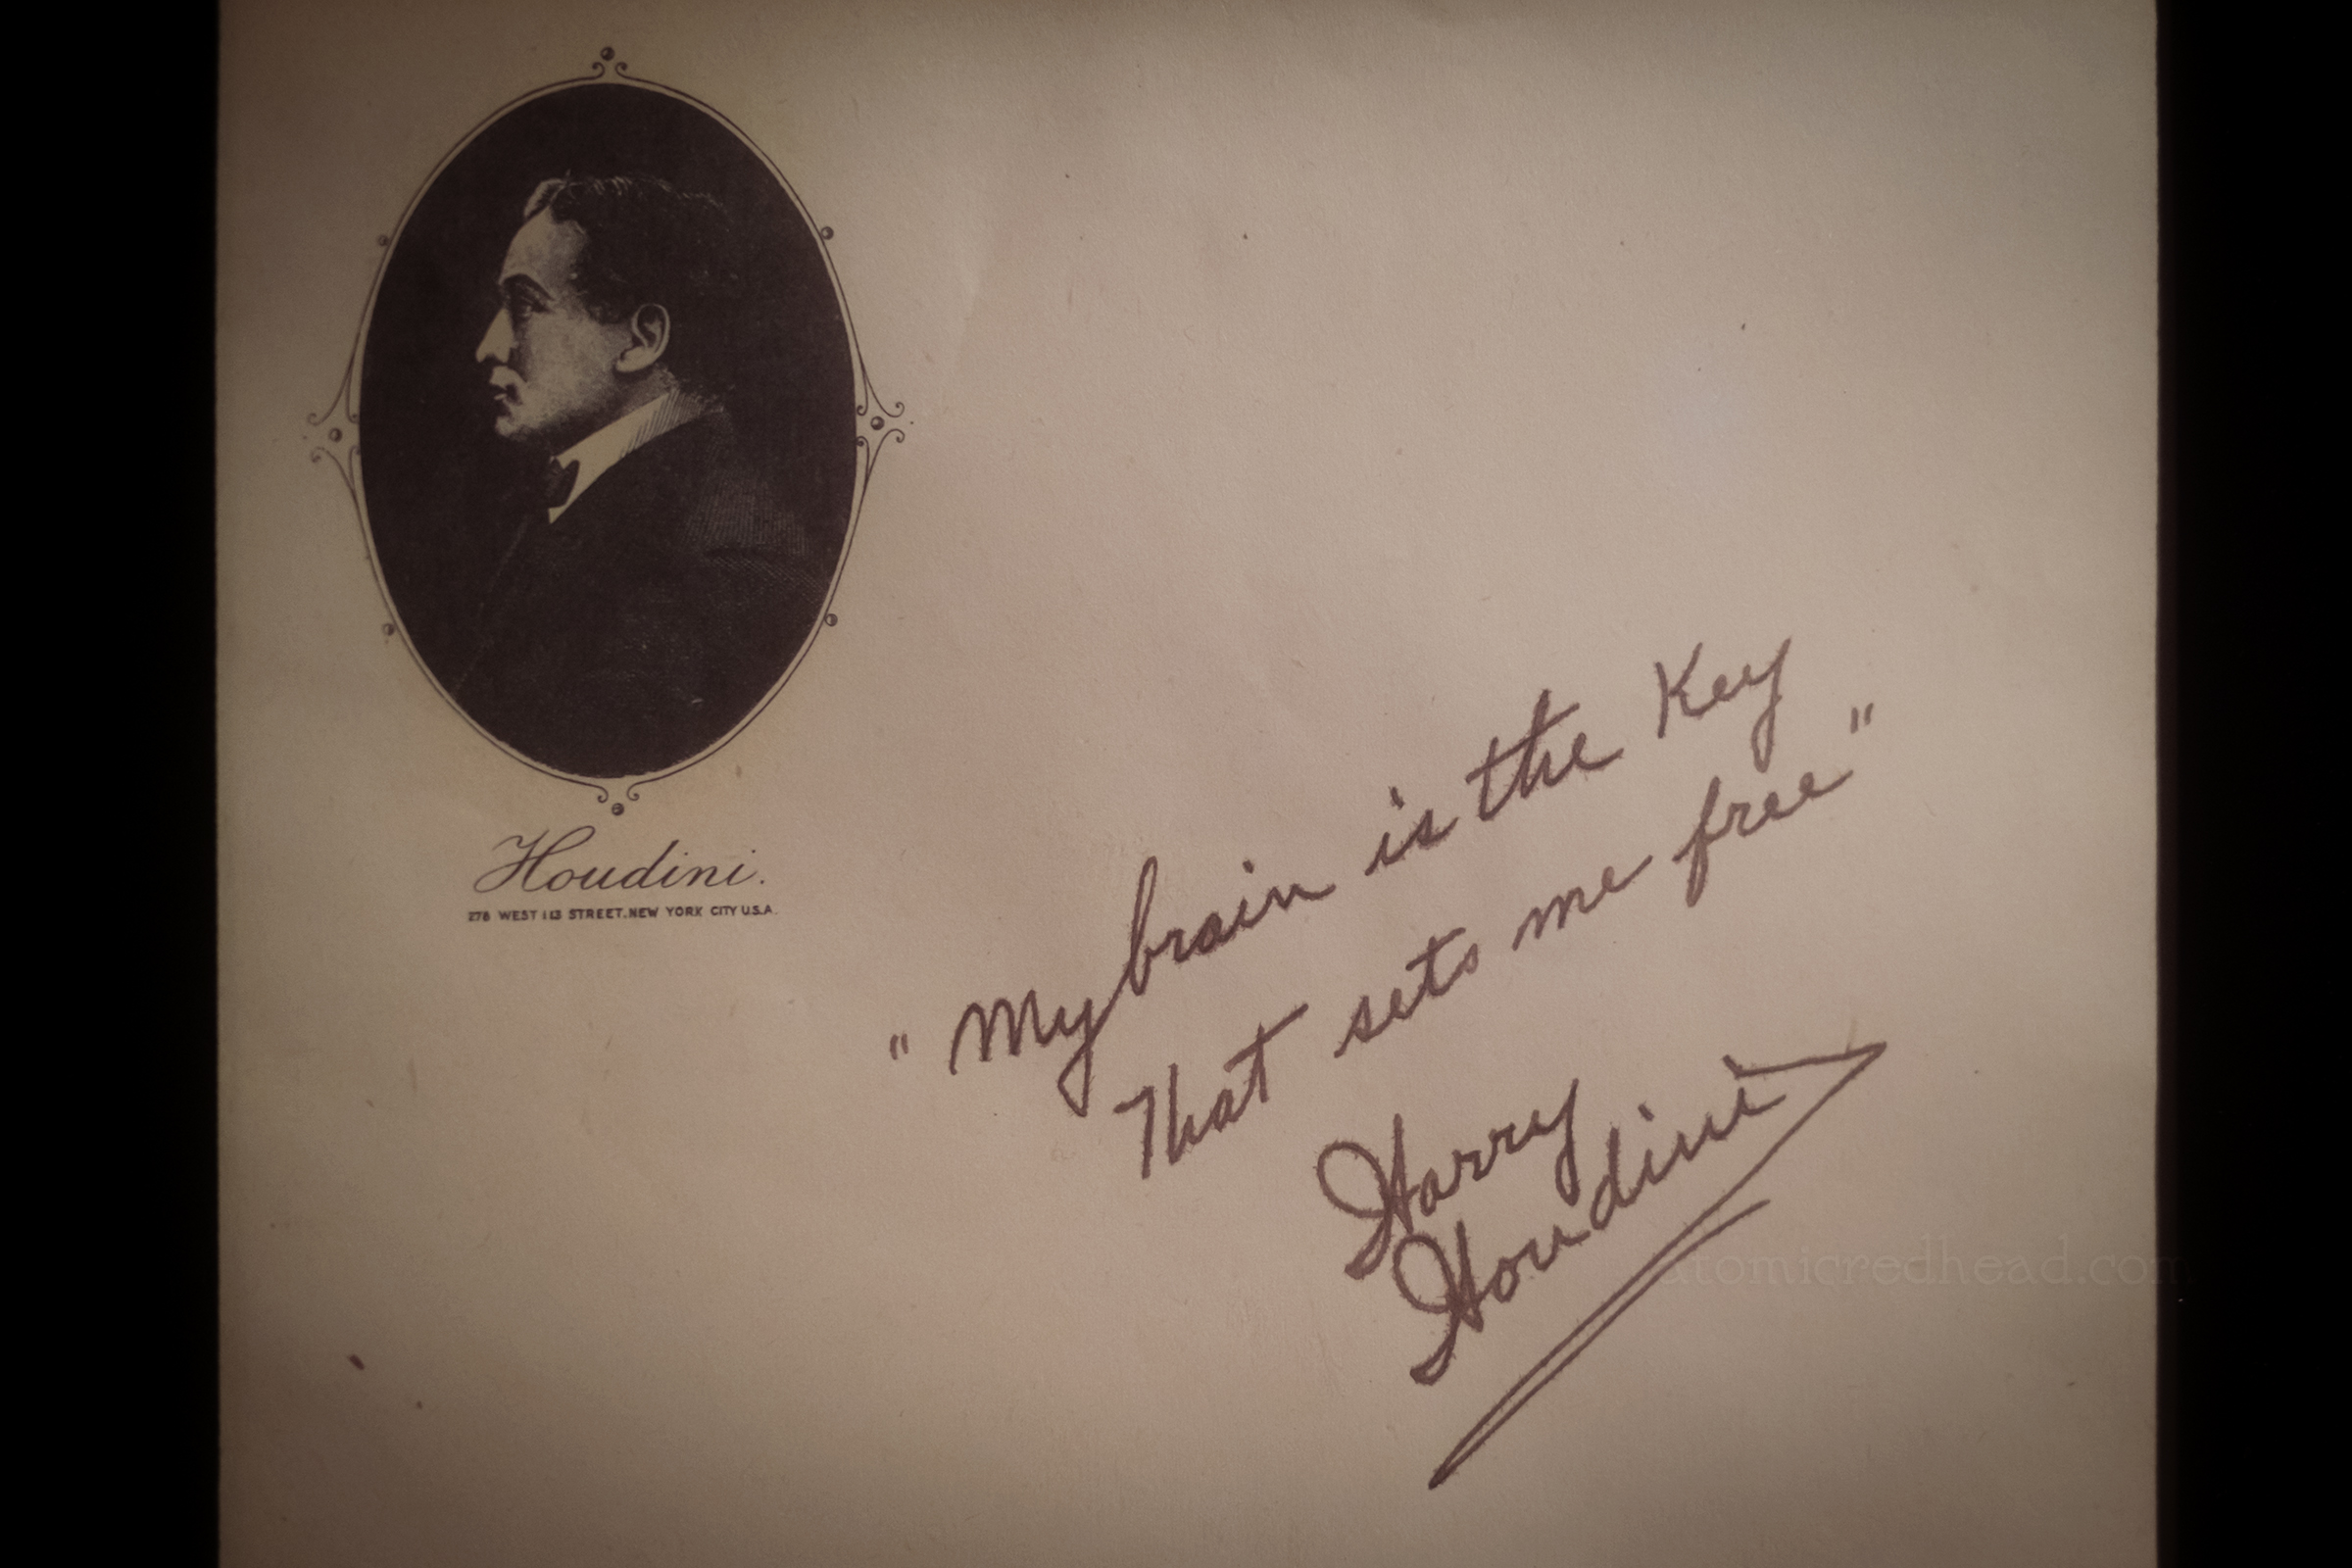 Houdini.
278 WEST 113 STREET. NEW YORK CITY U.S.A.
"My brain is the Key
That sets me free"
Harry
Houdini
atomicredhead.com